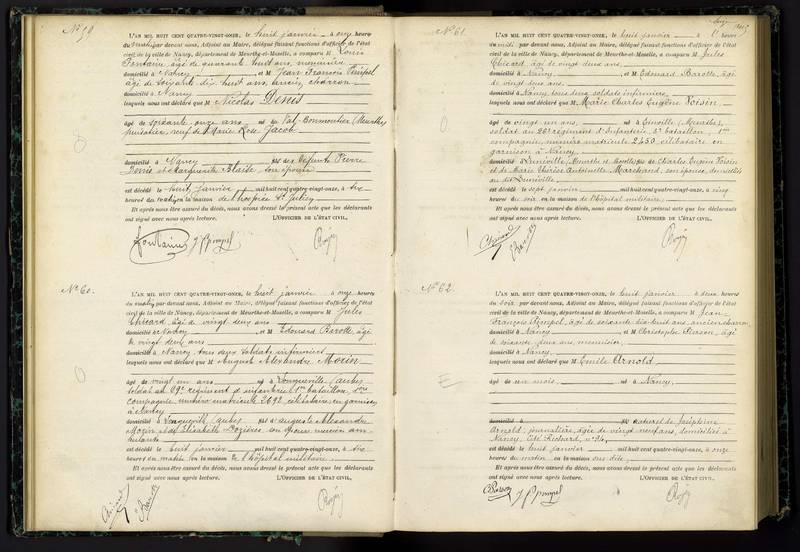 N° 59
L'AN MIL HUIT CENT QUATRE-VINGT-ONZE, le huit janvier à onze heures
du matin, par devant nous, Adjoint au Maire, délégué faisant fonctions d'officier de l'état
civil de la ville de Nancy, département de Meurthe-et-Moselle, a comparu M Louis
Fontaine âgé de quarante huit ans, menuisier
domicilié à Nancy et M Jean François Pimpel
âgé de soixante dix huit ans, ancien charron
domicilié à Nancy
lesquels nous ont déclaré que M Nicolas Denis
âgé soixante onze ans né au Val-Bonmoutier (Meurthe)
veuf de Marie Rose Jacob
domicilié à Nancy fils des défunts Pierre
Denis et Marguerite Blaise, son épouse
est décédé le huit janvier mil huit cent quatre-vingt-onze, à
heures du matin, en la maison de l'hospice St Julien
Et après nous être assuré du décès, nous avons dressé le présent acte que les déclarants
ont signé avec nous après lecture. L'OFFICIER DE L'ÉTAT CIVIL,
Fontaine J F Pimpel
N° 60.
L'AN MIL HUIT CENT QUATRE-VINGT-ONZE, le huit janvier à onze heures
du matin, par devant nous, Adjoint au Maire, délégué faisant fonctions d'officier de l'état
civil de la ville de Nancy, département de Meurthe-et-Moselle, a comparu M Jules
âgé de vingt deux ans
domicilié à Nancy et M Edouard Barotte, âgé
de vingt deux ans
domicilié à Nancy, tous deux soldats infirmiers
lesquels nous ont déclaré que M Auguste Alexandre Morin
âgé de vingt un ans né à (Aube)
soldat au 69e régiment d'infanterie 1er bataillon, 1ère
compagnie, numéro matricule 2692, célibataire, en garnison
à Nancy
domicilié à (Aube) fils d'Auguste Alexandre
Morin et d'Elisabeth son épouse
est décédé le huit janvier mil huit cent quatre-vingt-onze, à
heures du matin en la maison de l'hôpital militaire
Et après nous être assuré du décès, nous avons dressé le présent acte que les déclarants
ont signé avec nous après lecture. L'OFFICIER DE L'ÉTAT CIVIL,
N° 61.
L'AN MIL HUIT CENT QUATRE-VINGT-ONZE, le huit janvier à heure
du midi par devant nous, Adjoint au Maire, délégué faisant fonctions d'officier de l'état
civil de la ville de Nancy, département de Meurthe-et-Moselle, a comparu M Jules
âgé de vingt deux ans
domicilié à Nancy et M Edouard Barotte, âgé
de vingt deux ans
domicilié à Nancy, tous deux soldats infirmiers
lesquels nous ont déclaré que M Marie Charles Eugène Voisin
âgé de vingt un ans, né à Einville (Meurthe),
soldat au 26e régiment d'Infanterie, 3e bataillon, 1ère
compagnie, numéro matricule 2450, célibataire en
garnison à Nancy
domicilié à Lunéville (Meurthe et Moselle) fils de Charles Eugène Voisin
et de Marie Thérèse Antoinette Marchand, son épouse, domiciliés
au dit Lunéville
est décédé le sept janvier mil huit cent quatre-vingt-onze, à cinq
heures du soir en la maison de l'hôpital militaire
Et après nous être assuré du décès, nous avons dressé le présent acte que les déclarants
ont signé avec nous après lecture. L'OFFICIER DE L'ÉTAT CIVIL,
N° 62.
L'AN MIL HUIT CENT QUATRE-VINGT-ONZE, le huit janvier à deux heures
du soir par devant nous, Adjoint au Maire, délégué faisant fonctions d'officier de l'état
civil de la ville de Nancy, département de Meurthe-et-Moselle, a comparu M Jean
François Pimpel, âgé de soixante dix-huit ans, ancien charron,
domicilié à Nancy et M Christophe Pierson, âgé
de soixante deux ans, menuisier,
domicilié à Nancy,
lesquels nous ont déclaré que M Emile Arnold
âgé de un mois, né à Nancy,
domicilié à fils naturel de Joséphine
Arnold, journalière, âgée de vingt neuf ans, domiciliée à
Nancy, Cité Richard, n° 34,
est décédé le huit janvier mil huit cent quatre-vingt-onze, à onze
heures du matin en la maison sus dite,
Et après nous être assuré du décès, nous avons dressé le présent acte que les déclarants
ont signé avec nous après lecture. L'OFFICIER DE L'ÉTAT CIVIL,
C Pierson J F Pimpel